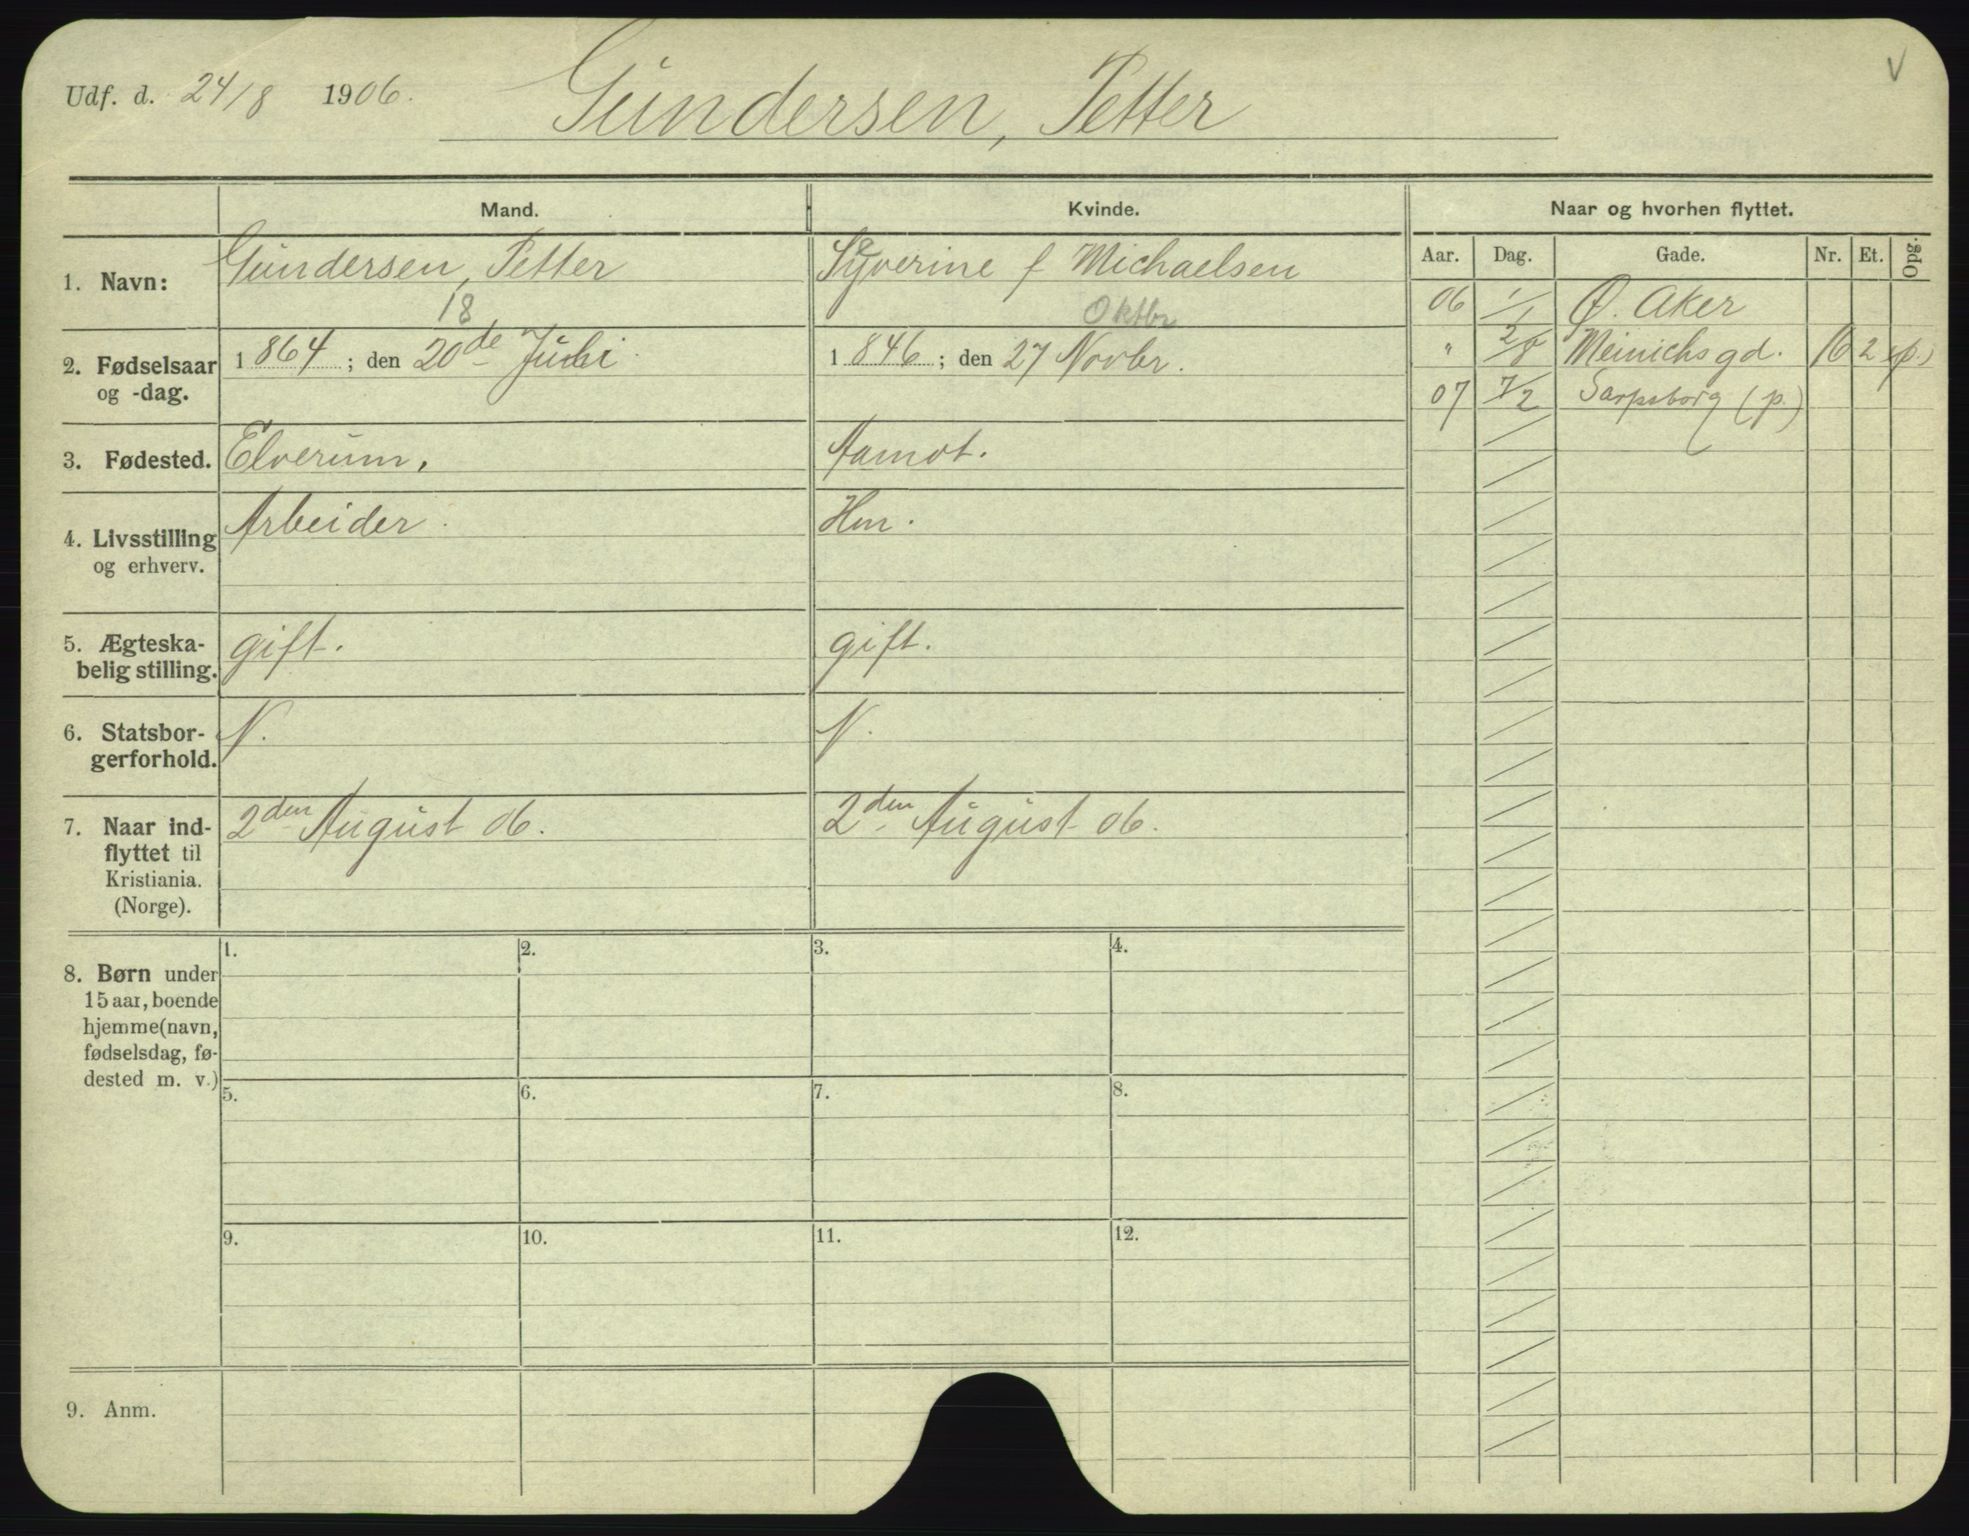 Udf. d. 24/8 1906.
Gundersen, Petter
V
Mand.
Kvinde.
Naar og hvorhen flyttet.
Aar. Dag. Gade. Nr. Et. Opg.
1. Navn:
Gundersen, Petter
Syverine f Michaelsen
06 1/1 Ø. Aker
18
Oktbr
2. Fødselsaar og -dag.
1864; den 20de Juli
1846; den 27 Novbr.
" 2/8 Meinichsgd. 16 2 (p.)
07 7/2 Sarpsborg (p.)
3. Fødested.
Elverum.
Aamot.
4. Livsstilling
og erhverv.
Arbeider.
Hm.
5. Ægteska-
belig stilling.
gift.
gift.
6. Statsbor-
gerforhold.
N.
N.
7. Naar ind-
flyttet til
Kristiania.
(Norge).
2den August 06.
2den August 06.
8. Børn under
15 aar, boende
hjemme (navn,
fødselsdag, fø-
dested m. v.)
1. 2. 3. 4.
5. 6. 7. 8.
9. 10. 11. 12.
9. Anm.